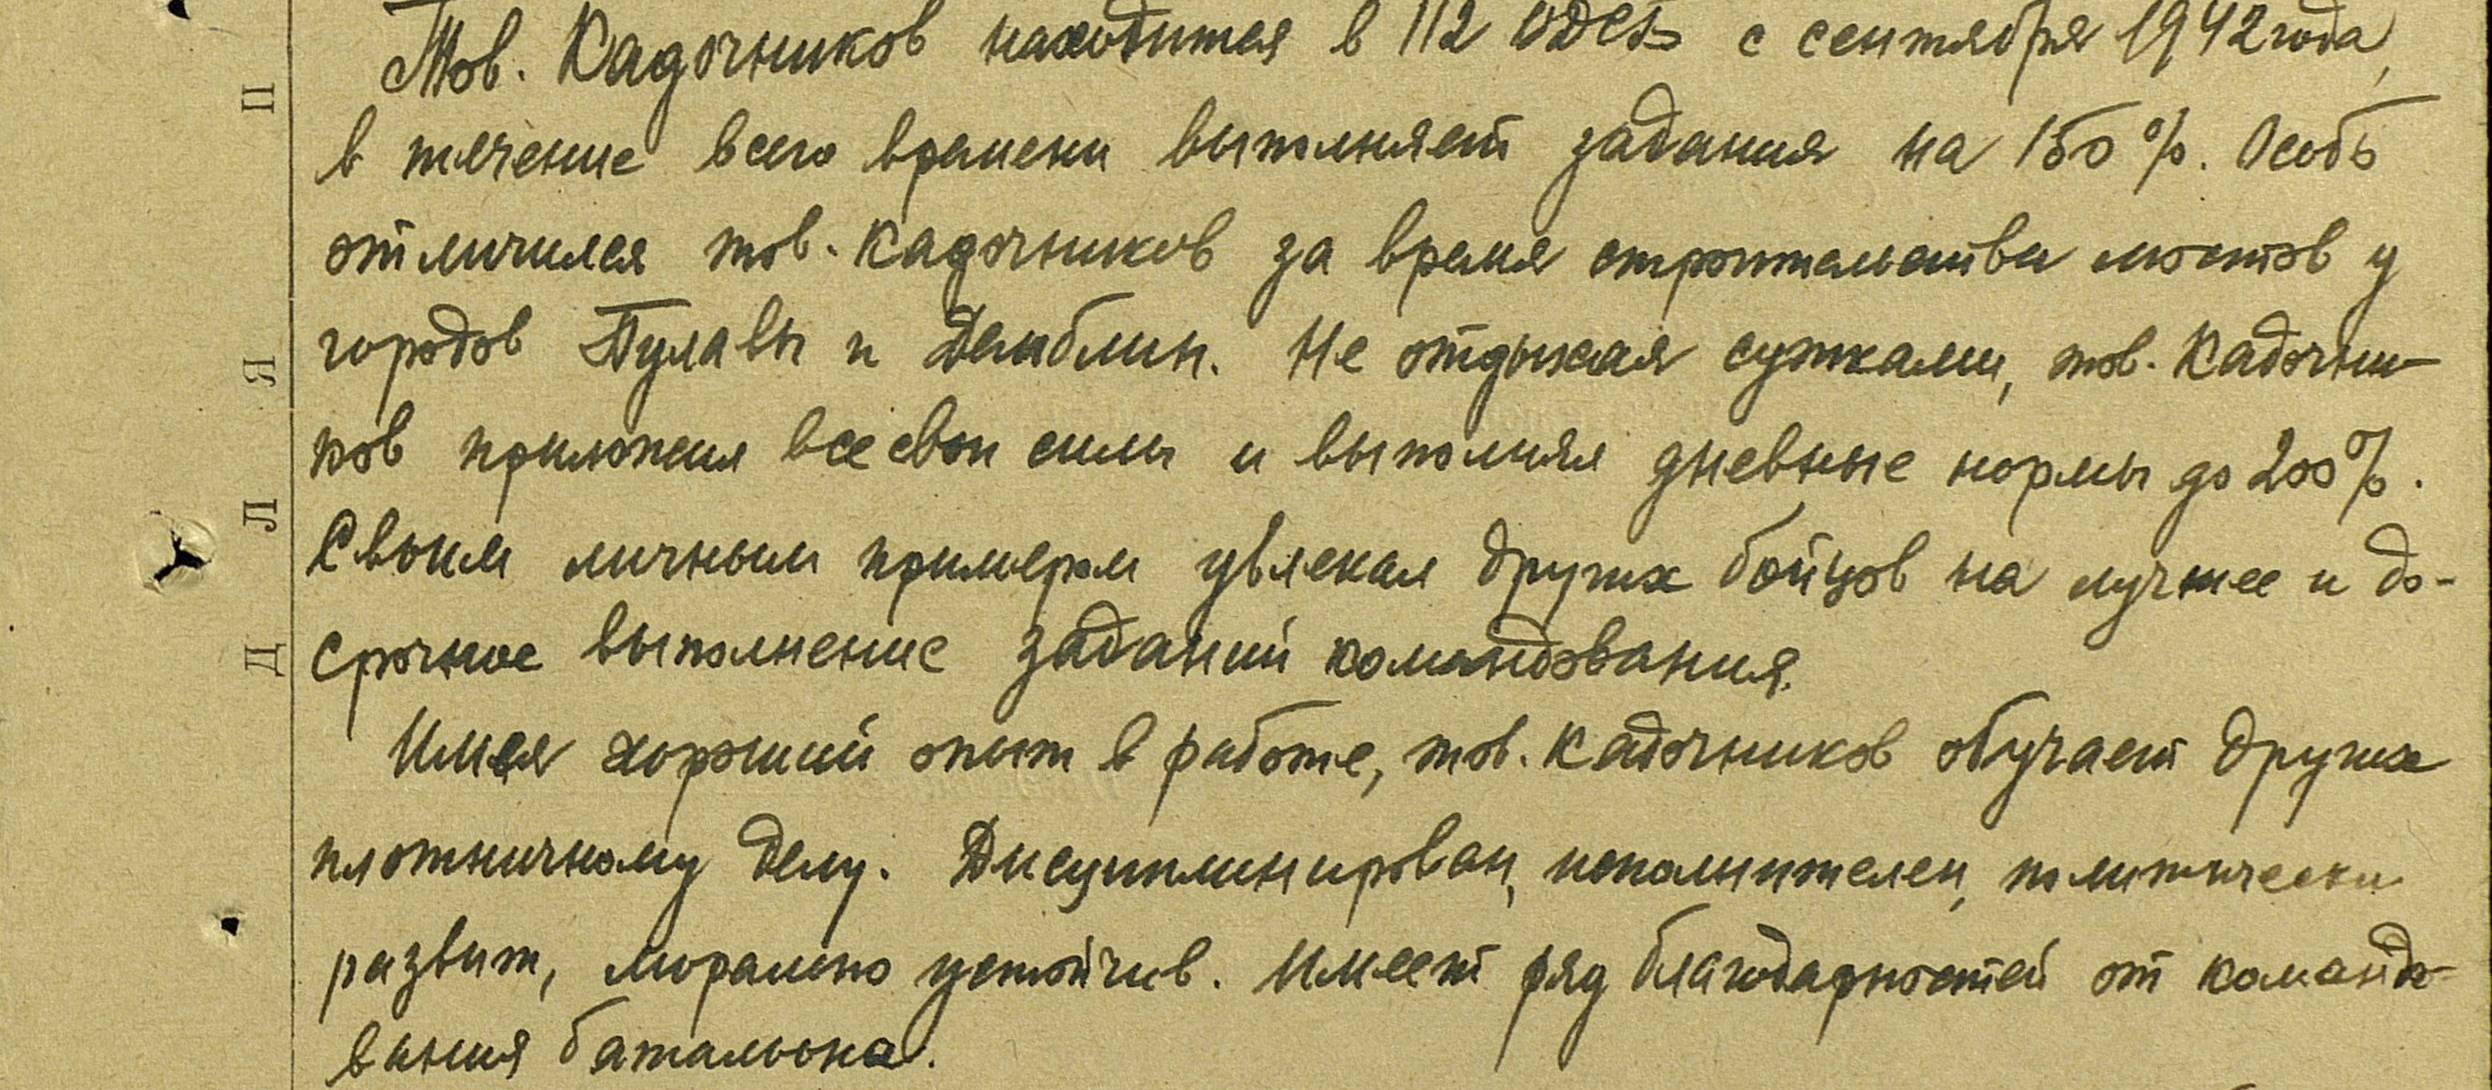 Тов. Кадочников находится в 112 ОДСБ с сентября 1942 года,
в течение всего времени выполняет задания на 150%. Особо
отличился тов. Кадочников за время строительства мостов у
городов Пулавы и Демблин. Не отдыхая сутками, тов. Кадочни-
ков приложил все свои силы и выполнял дневные нормы до 200%.
Своим личным примером увлекал других бойцов на лучшее и до-
срочное выполнение заданий командования.
Имея хороший опыт в работе, тов. Кадочников обучает других
плотничному делу. Дисциплинирован, исполнителен, политически
развит, морально устойчив. Имеет ряд благодарностей от командо-
вания батальона.
П
Я
Л
Д